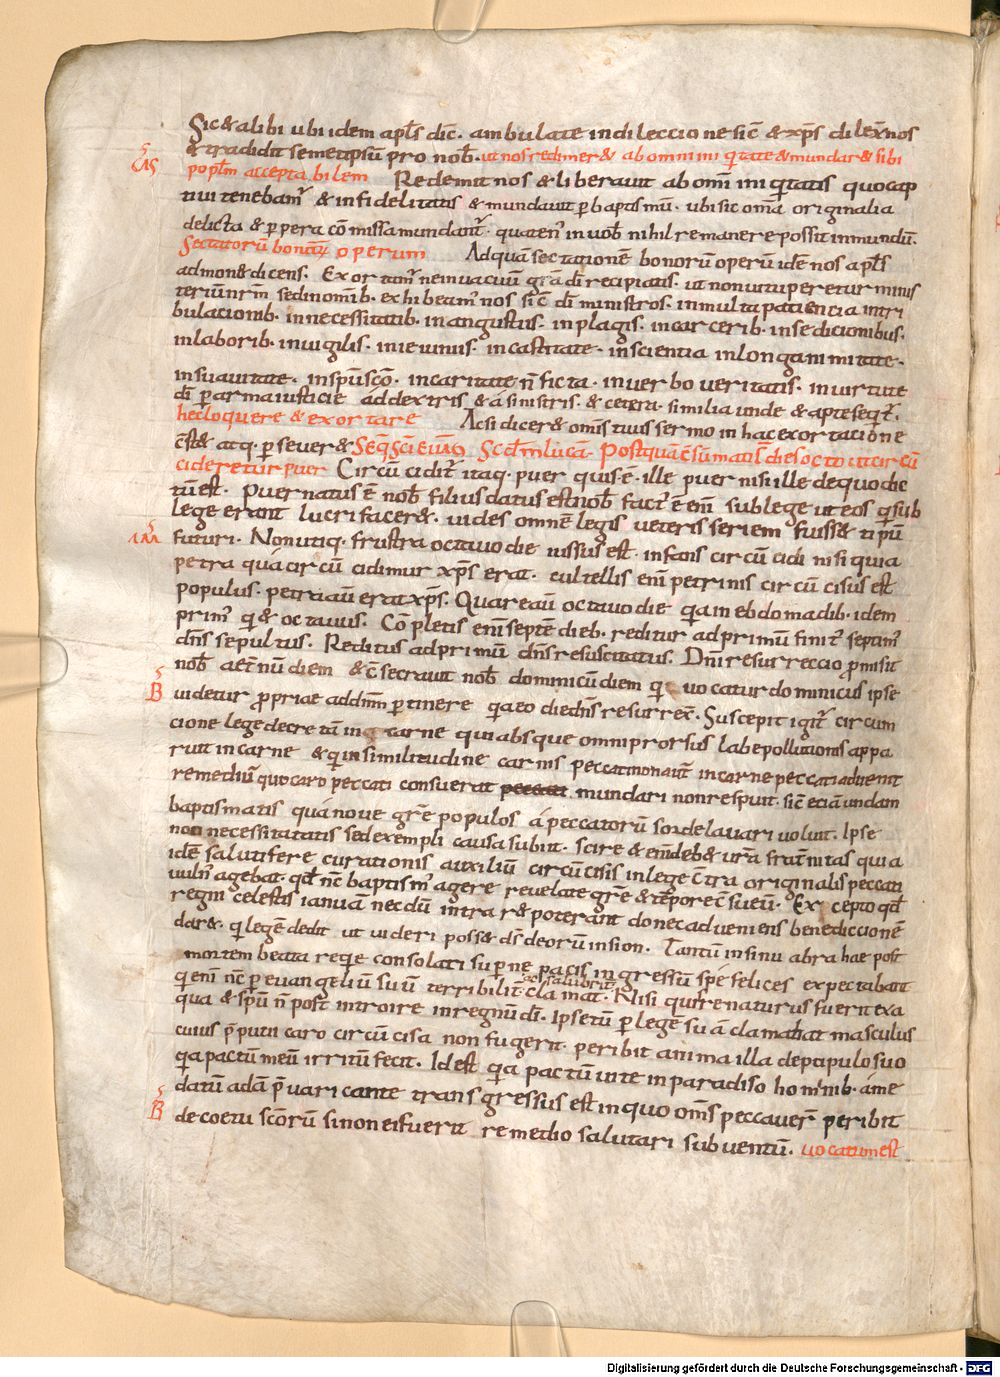 Sic & alibi ubi idem apl̄s dic̄. ambulate in dileccione sic̄ & xp̄s dilex̄ nos
& tradidit semetipsū pro nob̄. ut nos redimer& ab omni iniq̄tate & mundar& sibi
CAS
popl̄m acceptabilem Redemit nos & liberavit ab om̄i iniq̄tatis quo cap
tivi tenebam̄ & infidelitatis & mundavit p̄ baptismū. ubi sic om̄a originalia
delicta & p̄ pera cōmissa mundant̄. quaten̄ in vob̄ nihil remanere possit inmundū.
Sectatorū bonorū operum Ad quā sectationē bonorū operū idē nos apl̄s
admon& dicens. Exortam̄ ne in vacuū grā dī recipiatis. ut non vituperetur minis
teriū nr̄m sed in om̄ib. exhibeam̄ nos sic̄ dī ministros. in multa patiencia in tri
bulacionib. in necessitatib. in angustiis. in plagis. in carcerib. in sedicionibus.
in laborib. in vigiliis. in ieiuniis. in castitate. in scientia in longanimitate.
in suavitate. in sp̄u scō. in caritate n̄ ficta. in verbo veritatis. in virtute
dī p̄ arma iusticie a dextris & á sinistris. & cetera similia unde & apte seqt̄.
hec loquere & exortare Ac si dicer& om̄is tuus sermo in hac exortacione
c̄st& atq. p̄sever& Seq̄. Sc̄i Evāḡ Scd̄m lucā. Postquā c̄sūmati s̄ dies octo ut circū
cideretur puer Circūcidit̄ itaq. puer quis ē. ille puer nisi ille de quo dic
tū est. Puer natus ē nob̄ filius datus est nob̄ fact̄ ē enī sub lege ut eos q̄ sub
lege erant lucrifacer&. vides omnē legis veteris seriem fuiss& tipū
IAM
futuri. Non utiq. frustra octavo die iussus est infans circūcidi nisi quia
petra quá circūcidimur xp̄s erat. cultellis enī petrinis circūcisus est
populus. petra aū erat xp̄s. Quare aū octavo die q̄a in ebdomadib. idem
prim̄ q̄ & octavus. Cōpletis enī septē dieb. reditur ad primū finit̄ septim̄
dn̄s sepultus. Reditus ad primū dn̄s resuscitatus. Dn̄i resurreccio p̄misit
nob̄ aet̄nū diem & c̄secravit nob̄ dominicū diem q̄ vocatur dominicus ipse
B
videtur p̄priae ad dn̄m p̄tinere q̄a eo die dn̄s resurrex̄. Suscepit igit̄ circum
cione lege decretā in carne qui absque omni prorsus labe pollutionis appa
ruit in carne & q̄ in similitudine carnis peccati non aut̄ in carne peccati advenit
remediū quo caro peccati consuerat mundari non respuit. sic̄ etiā undam
baptismatis quá nove gr̄e populos á peccatorū sorde lavari voluit. Ipse
non necessitatatis sed exempli causa subiit. scire & enī deb& vr̄a frat̄nitas quia
idē salutifere curationis auxiliū circūcisis in lege c̄tra originalis peccati
vuln̄ agebat. qd̄ nc̄ baptism̄ agere revelate gr̄e & tēpore c̄suevī. Excepto qd̄
regni celestis ianuā necdū intrare poterant donec adveniens benediccionē
dar&. q̄ legē dedit ut videri poss& ds̄ deorū in sion. Tantū in sinu abrahae post
mortem beata reqe consolati sup̄ne pacis ingressū spe felices expectabant
ac salubrit̄
q̄ enī nc̄ p̄ evangeliū suū terribilit̄ clamat. Nisi qui renaturus fuerit ex a
qua & spū n̄ pot̄ introire in regnū dī. Ipse tū p̄ legē suā clamabat masculus
cuius p̄putii caro circūcisa non fugerit. peribit anima illa de p̄ipulo suo
q̄a pactū meū irritū fecit. Id est q̄a pactū vite in paradiso hominib. á me
datū adā p̄varicante transgressus est in quo om̄s peccaver̄ peribit
B
de coetu scōrū si non ei fuerit remedio salutari subventū. vocatum est
Digitalisierung gefördert durch die Deutsche Forschungsgemeinschaft - DFG